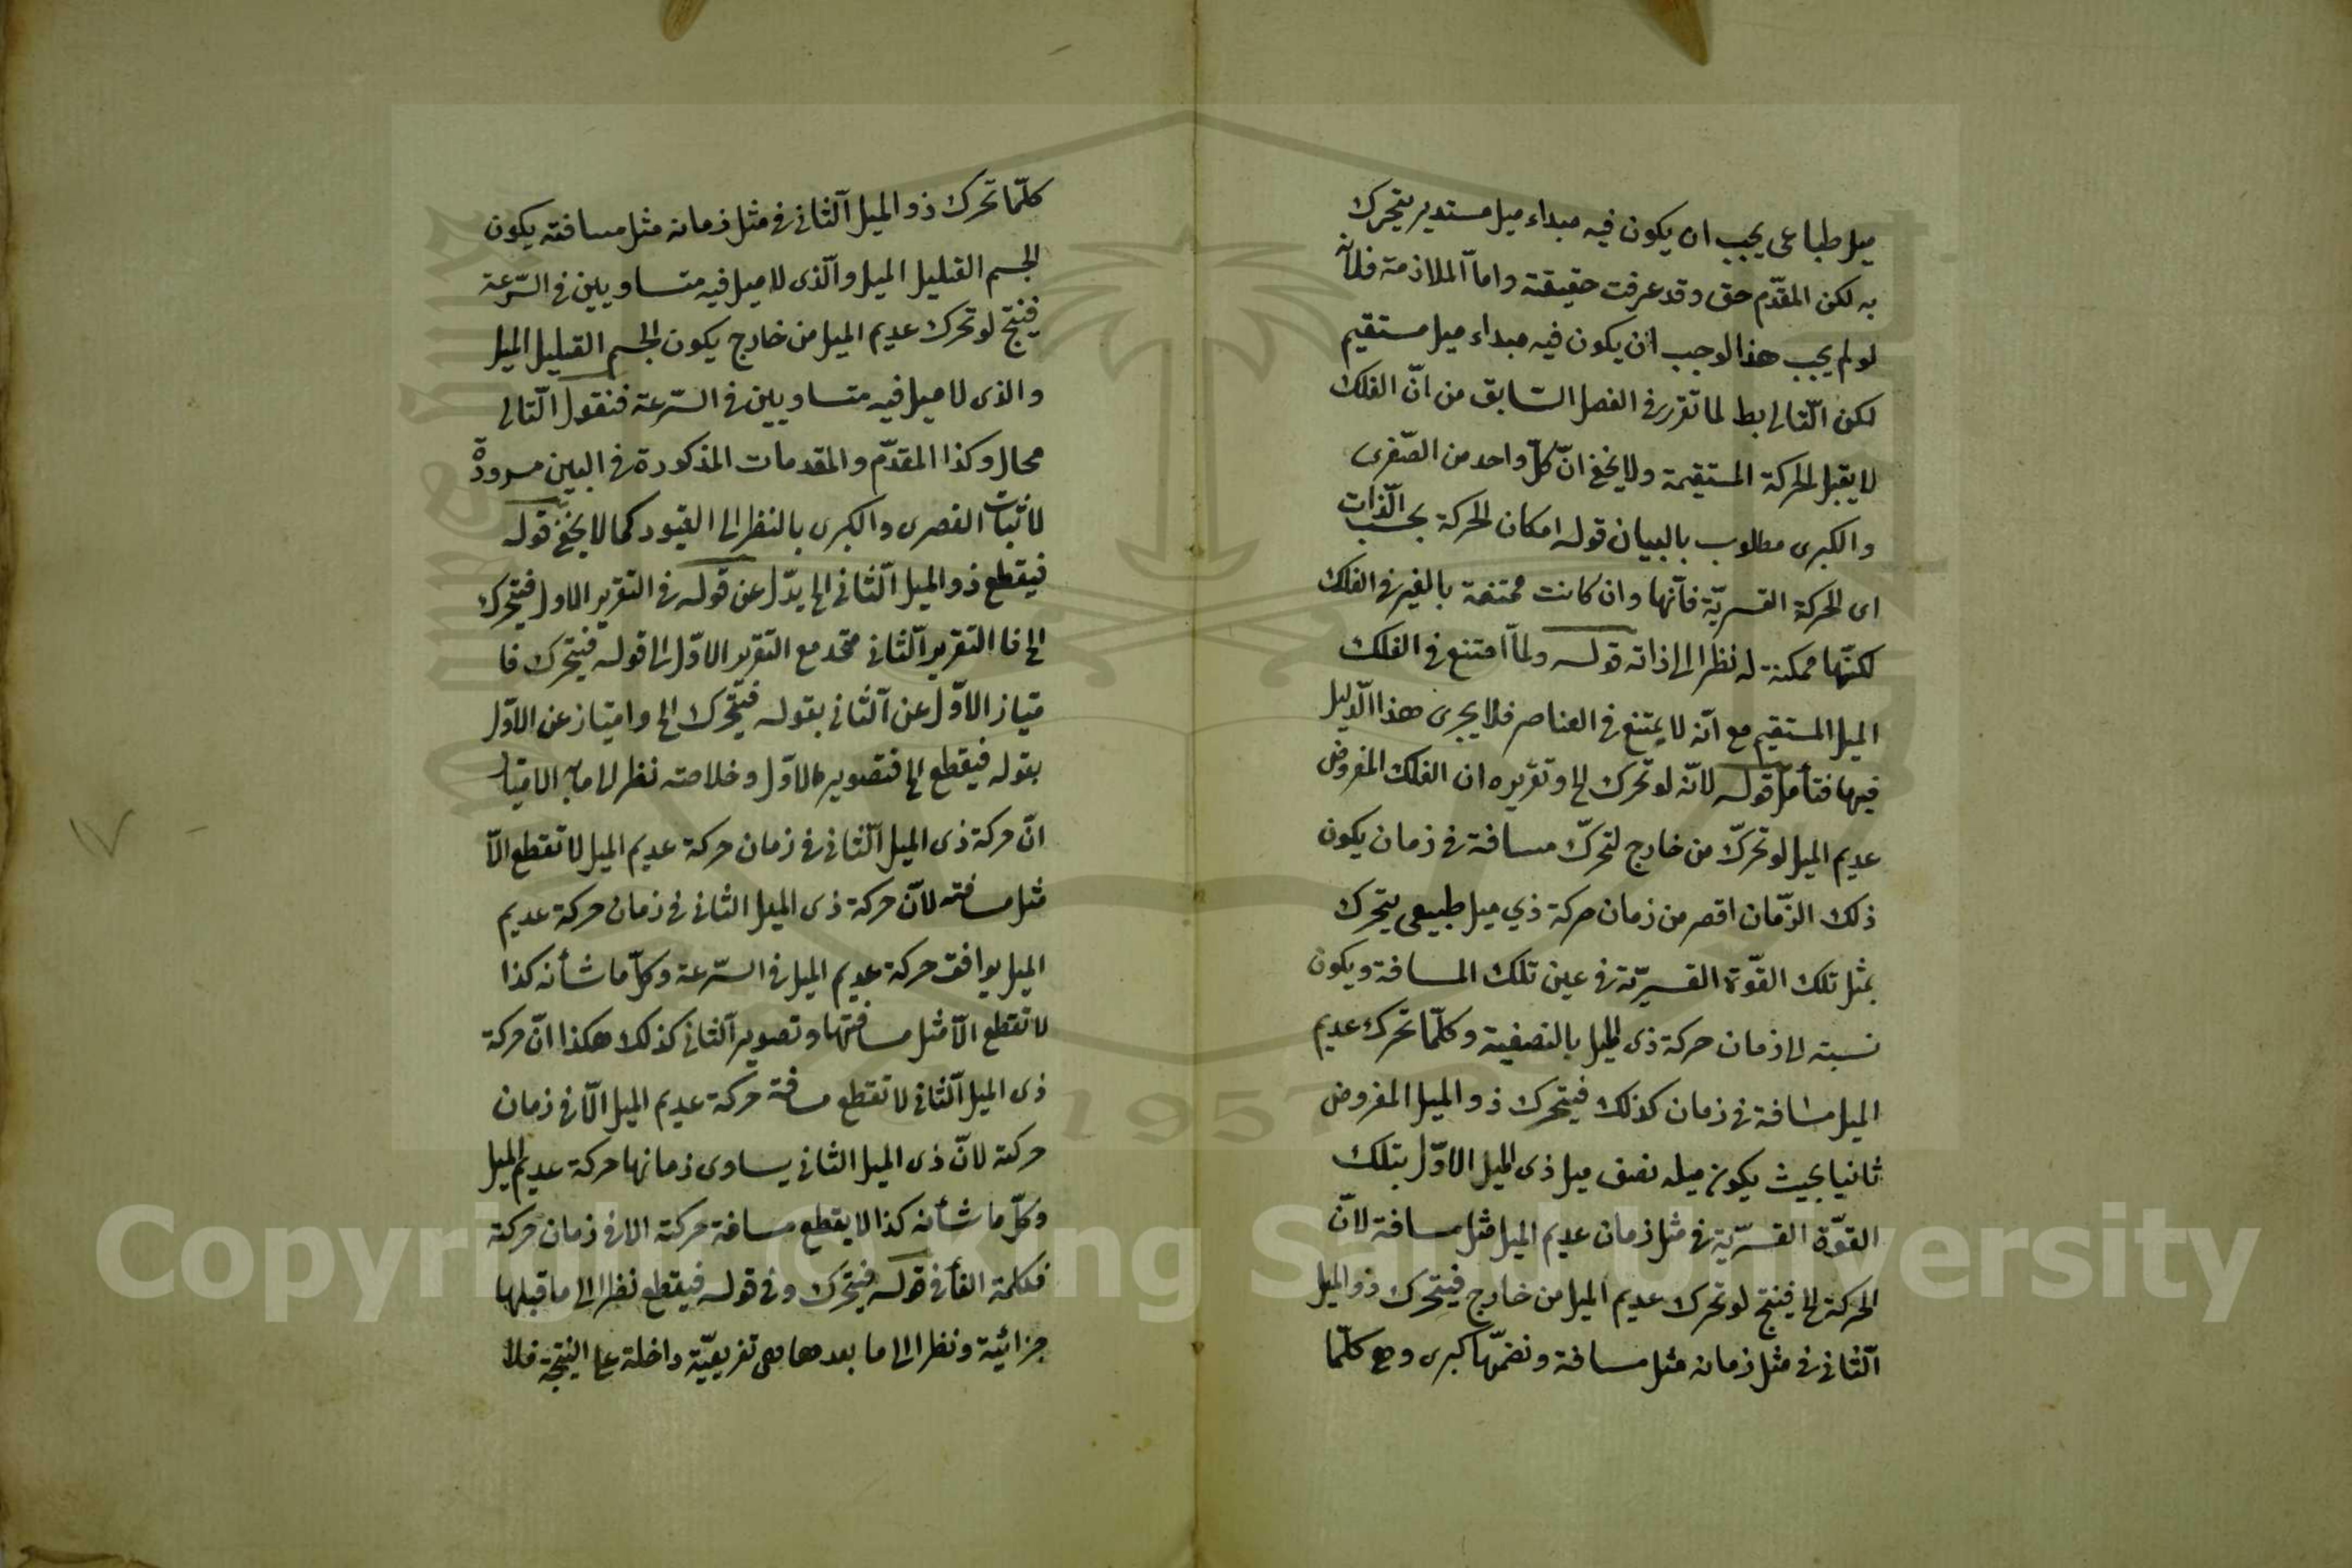 ميل طباعى يجب ان يكون فيه مبداء ميل مستدير يتحرك
به لكن المقدّم حق وقد عرفت حقيقته واما الملازمة فلانّه
لو لم يجب هذا لوجب ان يكون فيه مبداء ميل مستقيم
لكن التّالى بط لما تقرر فى الفصل السّابق من انّ الفلك
لا يقبل الحركة المستقيمة ولا يخفى انّ كلّ واحد من الصّغرى
والكبرى مطلوب بالبيان قوله امكان الحركة بحسب الذّات
اى الحركة القسريّة فانّها وان كانت ممتنعة بالغير فى الفلك
لكنّها ممكنة له نظرا الى ذاته قوله ولمّا امتنع فى الفلك
الميل المستقيم مع انّه لا يمتنع فى العناصر فلا يجرى هذا الدّليل
فيها فتأمل قوله لانّه لو تحرك الخ وتقريره ان الفلك المفروض
عديم الميل لو تحرّك من خارج لتحرّك مسافة فى زمان يكون
ذلك الزّمان اقصر من زمان حركة ذي ميل طبيعى يتحرك
بمثل تلك القوّة القسريّة فى عين تلك المسافة ويكون
نسبته الى زمان حركة ذى الميل بالنصفية وكلّما تحرك عديم
الميل مسافة فى زمان كذلك فيتحرك ذو الميل المفروض
ثانيا بحيث يكون ميله نصف ميل ذى الميل الاوّل بتلك
القوّة القسريّة فى مثل زمان عديم الميل مثل مسافة لانّ
الحركة الخ فينتج لو تحرك عديم الميل من خارج فيتحرك ذو الميل
الثّانى فى مثل زمانه مثل مسافة ونضمّها كبرى وهى كلّما
كلّما تحرك ذو الميل الثّانى فى مثل زمانه مثل مسافته يكون
الجسم القليل الميل والّذى لا ميل فيه متساويين فى السّرعة
فينتج لو تحرك عديم الميل من خارج يكون الجسم القليل الميل
والذى لا ميل فيه متساويين فى السّرعة فنقول التّالى
محال وكذا المقدّم والمقدمات المذكورة فى البين مسرودة
لاثبات الصغرى والكبرى بالنظر الى القيود كما لا يخفى قوله
فيقطع ذو الميل الثّانى الخ بدّل عن قوله فى التقرير الاول فيتحرك
الخ فا التقرير الثّانى متّحد مع التقرير الاوّل الى قوله فيتحرك فا
متياز الاوّل عن الثّانى بقوله فيتحرك الخ وامتياز عن الاوّل
بقوله فيقطع الخ فتصوير الاوّل وخلاصته نظر الى ما به الامتياز
انّ حركة ذى الميل الثّانى فى زمان حركة عديم الميل لا تقطع الّا
مثل مسافته لانّ حركة ذى الميل الثانى فى زمان حركة عديم
الميل يوافق حركة عديم الميل فى السّرعة وكلّ ما شأنه كذا
لا تقطع الّا مثل مسافتها وتصوير الثّانى كذلك هكذا انّ حركة
ذى الميل الثّانى لا تقطع مسافة حركة عديم الميل الّا فى زمان
حركته لانّ ذى الميل الثانى يساوى زمانها حركة عديم الميل
وكلّ ما شأنه كذا لا يقطع مسافة حركته الا فى زمان حركته
فكلمة الفأ فى قوله فيتحرك وفى قوله فيقطع نظرا الى ما قبلها
جزائية ونظرا الى ما بعدها هى تفريعيّة داخلة على النتيجة فلا
١٧
1957
Copyright © King Saud University